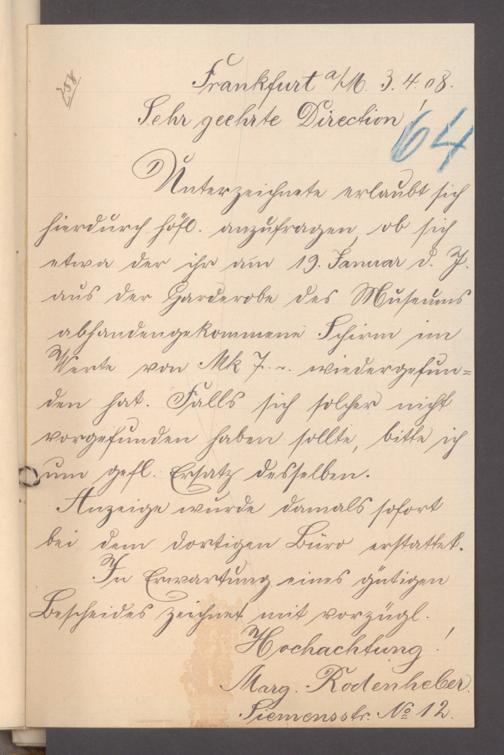 258
Frankfurt a/M. 3.4.08.
Sehr geehrte Direction!
64
Unterzeichnete erlaubt sich
hierdurch höfl. anzufragen, ob sich
etwa der ihr am 19. Januar d. J.
aus der Garderobe des Museums
abhandengekommene Schirm im
Werte von Mk 7.-. wiedergefun=
den hat. Falls sich solcher nicht
vorgefunden haben sollte, bitte ich
um gefl. Ersatz desselben.
Anzeige wurde damals sofort
bei dem dortigen Büro erstattet.
In Erwartung eines gütigen
Bescheides zeichnet mit vorzügl.
Hochachtung!
Marg. Rodenheber.
Siemensstr. No 12.